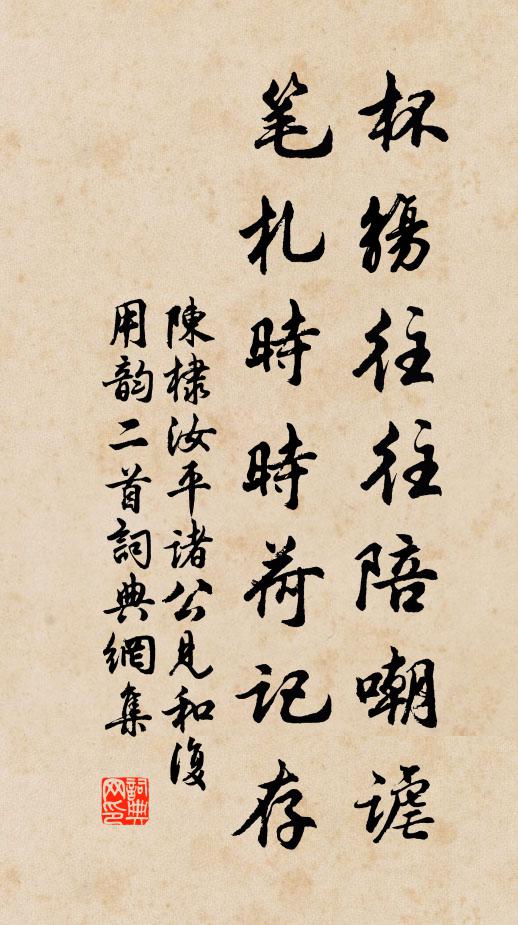 杯觴往往陪嘲謔
笔札時時荷記存
陳棣汝平諸公見和復
用韵二首詞典網集
詞典网印